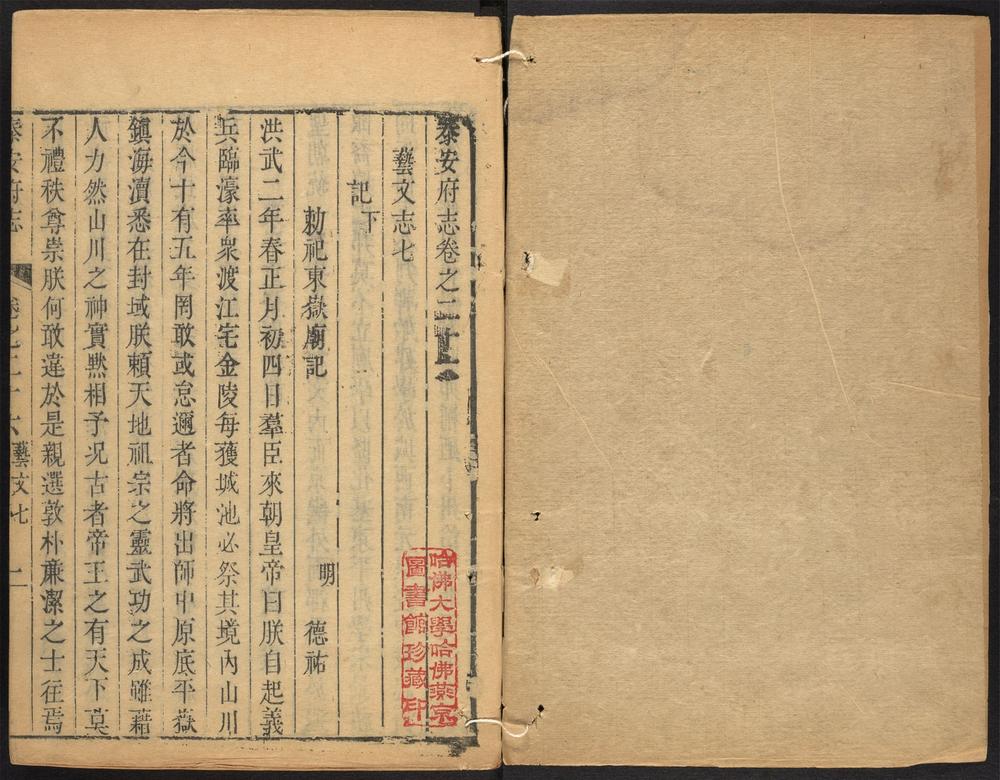 泰安府志卷之二十
藝文志七
記下
勅祀東嶽廟記
明 德祐
洪武二年春正月初四日羣臣來朝皇帝曰朕自起義
兵臨濠率衆渡江宅金陵每獲城池必祭其境內山川
於今十有五年罔敢或怠邇者命將出師中原底平嶽
鎮海瀆悉在封域朕賴天地祖宗之靈武功之成雖藉
人力然山川之神實黙相予况古者帝王之有天下莫
不禮秩尊崇朕何敢違於是親選敦朴廉潔之士往焉
泰安府志 卷之二十六 藝文七 二
哈佛大學哈佛燕京
圖書館珍藏印